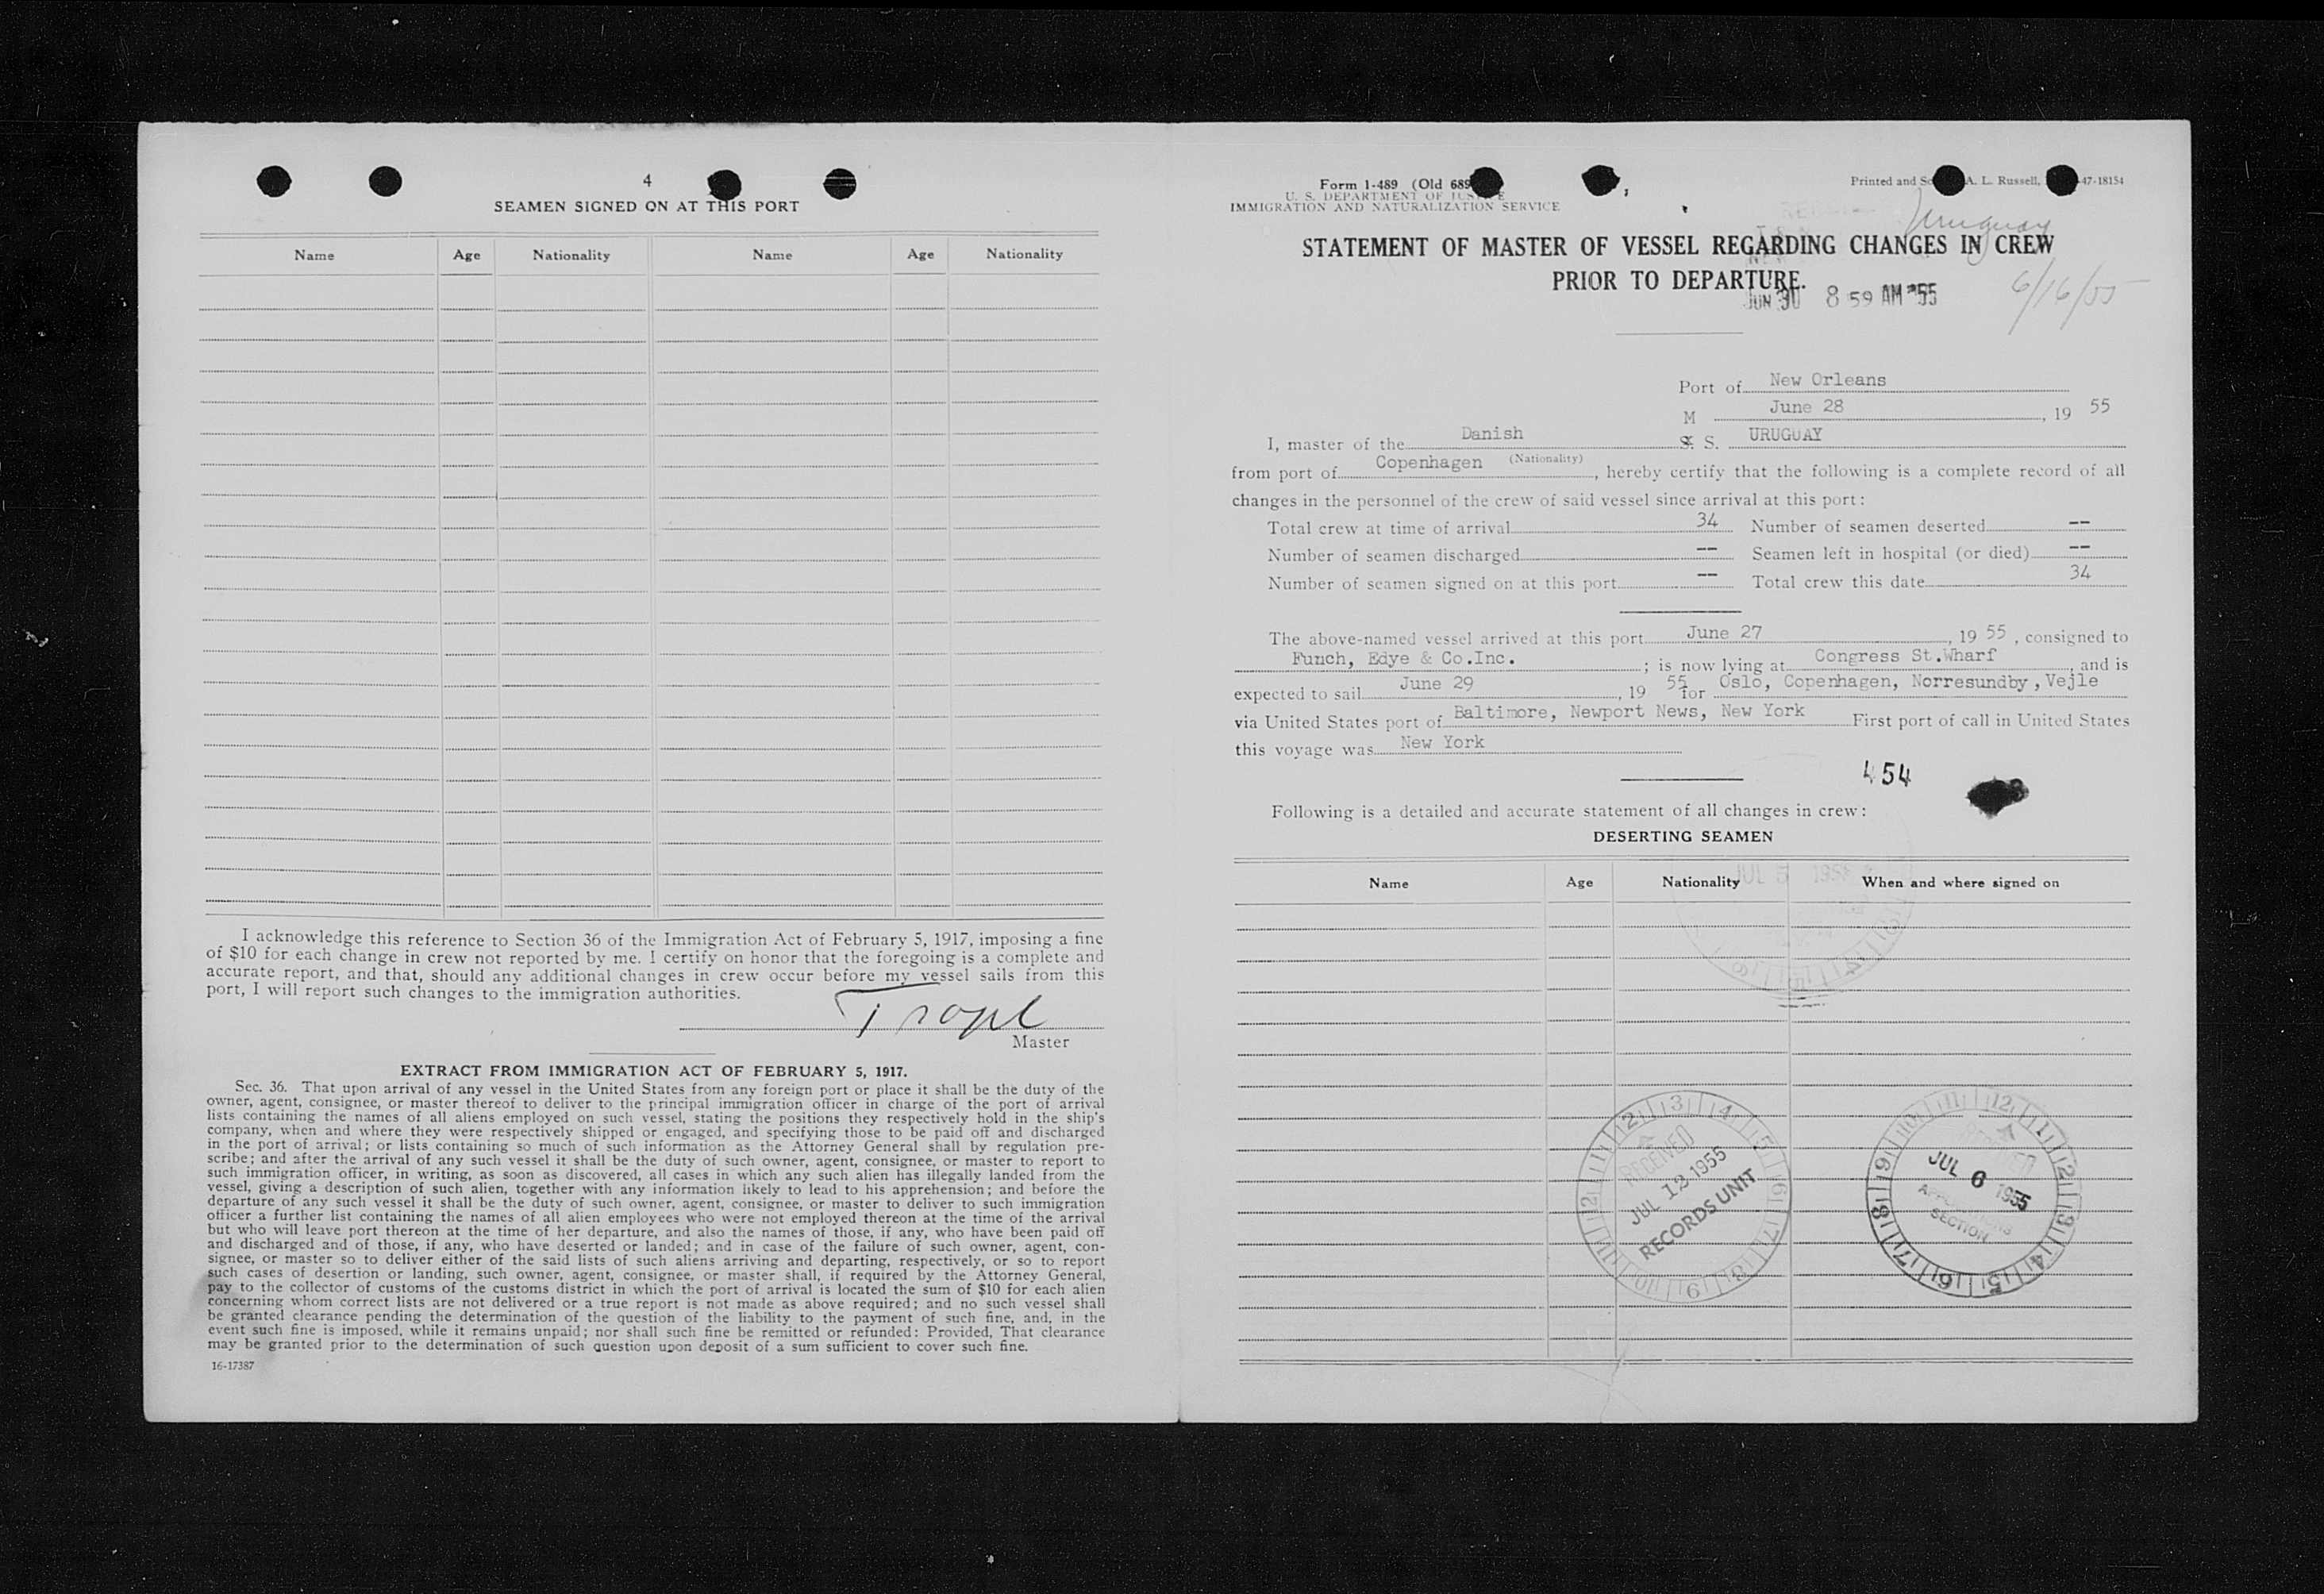 4
SEAMEN SIGNED ON AT THIS PORT
Name Age Nationality Name Age Nationality
I acknowledge this reference to Section 36 of the Immigration Act of February 5, 1917, imposing a fine
of $10 for each change in crew not reported by me. I certify on honor that the foregoing is a complete and
accurate report, and that, should any additional changes in crew occur before my vessel sails from this
port, I will report such changes to the immigration authorities.
Master
EXTRACT FROM IMMIGRATION ACT OF FEBRUARY 5, 1917.
Sec. 36. That upon arrival of any vessel in the United States from any foreign port or place it shall be the duty of the
owner, agent, consignee, or master thereof to deliver to the principal immigration officer in charge of the port of arrival
lists containing the names of all aliens employed on such vessel, stating the positions they respectively hold in the ship's
company, when and where they were respectively shipped or engaged, and specifying those to be paid off and discharged
in the port of arrival; or lists containing so much of such information as the Attorney General shall by regulation pre-
scribe; and after the arrival of any such vessel it shall be the duty of such owner, agent, consignee, or master to report to
such immigration officer, in writing, as soon as discovered, all cases in which any such alien has illegally landed from the
vessel, giving a description of such alien, together with any information likely to lead to his apprehension; and before the
departure of any such vessel it shall be the duty of such owner, agent, consignee, or master to deliver to such immigration
officer a further list containing the names of all alien employees who were not employed thereon at the time of the arrival
but who will leave port thereon at the time of her departure, and also the names of those, if any, who have been paid off
and discharged and of those, if any, who have deserted or landed; and in case of the failure of such owner, agent, con-
signee, or master so to deliver either of the said lists of such aliens arriving and departing, respectively, or so to report
such cases of desertion or landing, such owner, agent, consignee, or master shall, if required by the Attorney General,
pay to the collector of customs of the customs district in which the port of arrival is located the sum of $10 for each alien
concerning whom correct lists are not delivered or a true report is not made as above required; and no such vessel shall
be granted clearance pending the determination of the question of the liability to the payment of such fine, and, in the
event such fine is imposed, while it remains unpaid; nor shall such fine be remitted or refunded: Provided, That clearance
may be granted prior to the determination of such question upon deposit of a sum sufficient to cover such fine.
16-17387
Form 1-489 (Old 689
U. S. DEPARTMENT OF JUSTICE
IMMIGRATION AND NATURALIZATION SERVICE
Printed and A. L. Russell, 47-18154
Uruguay
STATEMENT OF MASTER OF VESSEL REGARDING CHANGES IN CREW
PRIOR TO DEPARTURE.
JUN 30 8 59 AM '55
6/16/55
Port of New Orleans
June 28, 19 55
I, master of the Danish M S. S. URUGUAY
(Nationality)
from port of Copenhagen, hereby certify that the following is a complete record of all
changes in the personnel of the crew of said vessel since arrival at this port:
Total crew at time of arrival 34 Number of seamen deserted --
Number of seamen discharged -- Seamen left in hospital (or died) --
Number of seamen signed on at this port -- Total crew this date 34
The above-named vessel arrived at this port June 27, 19 55, consigned to
Funch, Edye & Co.Inc.; is now lying at Congress St.Wharf, and is
expected to sail June 29, 19 55 for Oslo, Copenhagen, Norresundby, Vejle
via United States port of Baltimore, Newport News, New York First port of call in United States
this voyage was New York
454
Following is a detailed and accurate statement of all changes in crew:
DESERTING SEAMEN
Name Age Nationality When and where signed on
JUL 5
RECEIVED
JUL 12 1955
RECORDS UNIT
JUL 6 1955
SECTION